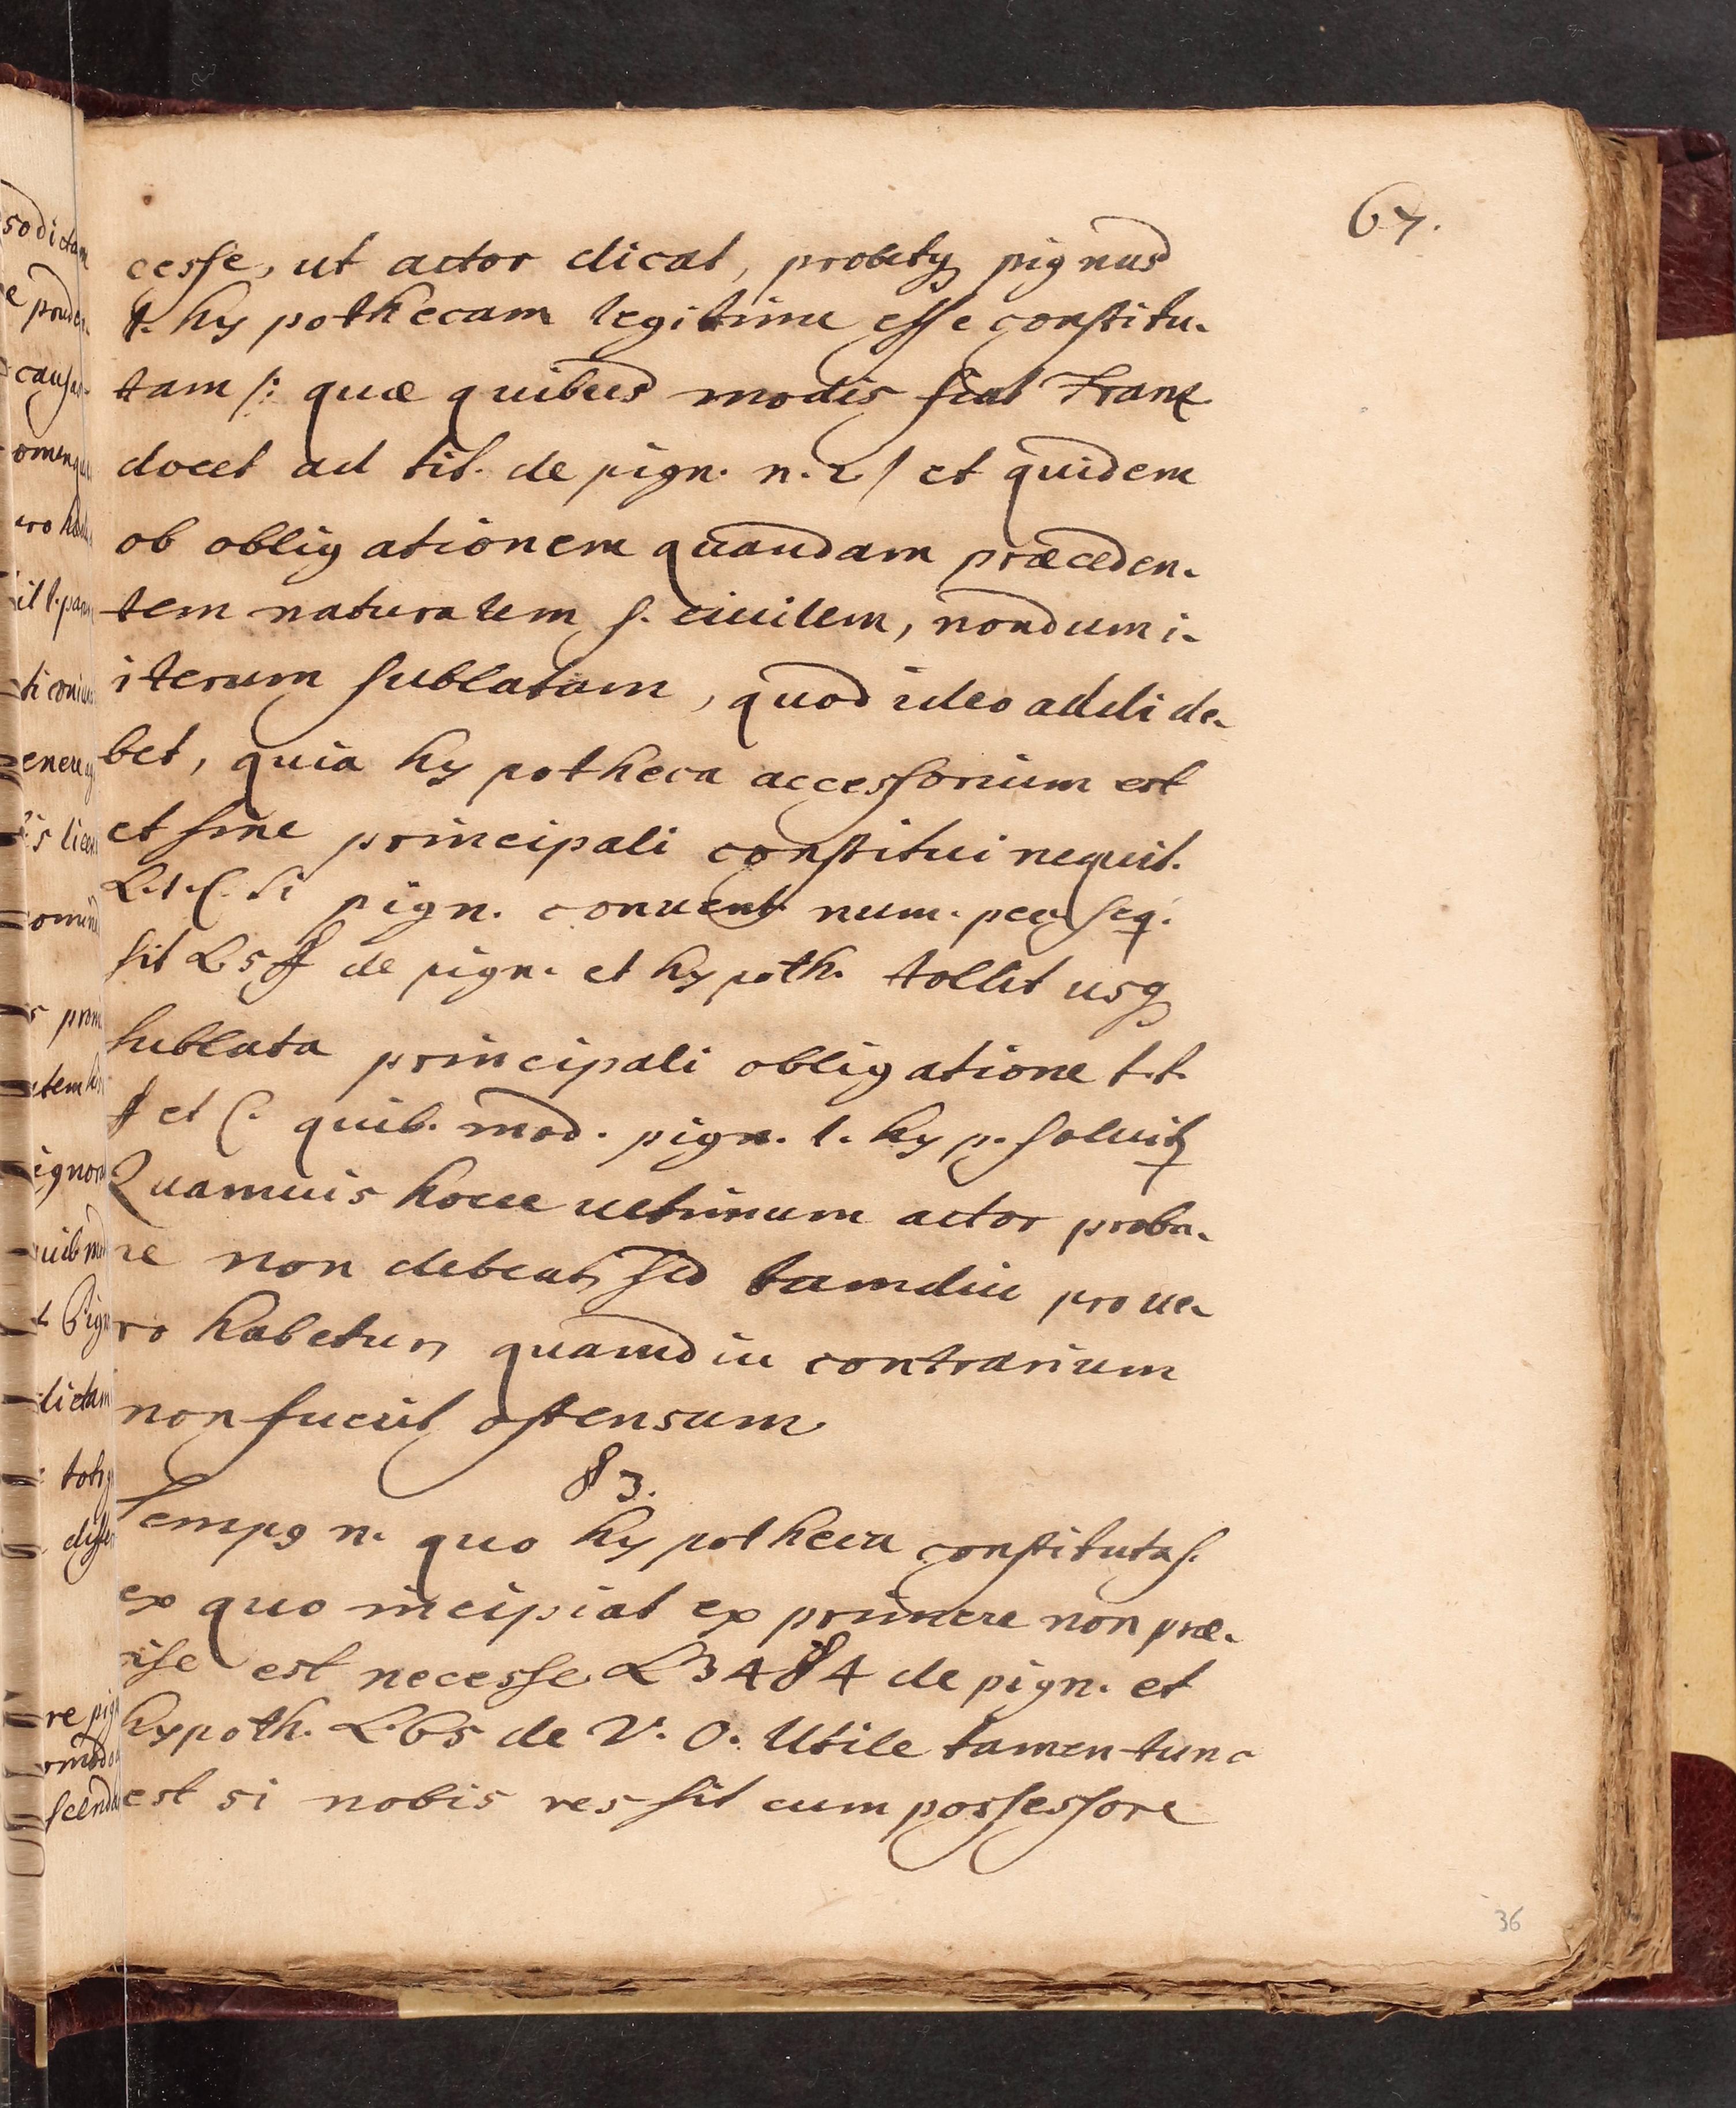 67.
cesse, ut actor dicat, probetq pignus
s. hypothecam legitime esse constitu-
tam /: quæ quibus modis fiat Frantz
docet ad tit. de pign. n. 2 / et quidem
ob obligationem quandam præceden-
tem naturalem s. ciuilem, nondum i-
iterum sublatam, quod ideo addi de-
bet, quia hypotheca accessorium est
et sine principali constitui nequit.
L. 1. C. si pign. conuent num. pec seq.
sit L 5 ff de pign. et hypoth. tollit usq
sublata principali obligatione t. t.
ff et C. quib. mod. pign. l. hyp. soluit
Quamuis hocce ultimum actor proba-
re non debeat, sed tamdiu pro ue-
ro habetur, quamdiu contrarium
non fuerit ostensum
§ 3.
Temp9 n. quo hypotheca constituta s.
ex quo incipiat exprimere non præ-
cise est necesse L 34 § 4 de pign. et
hypoth. L. 65 de V. O. Utile tamen tunc
est si nobis res sit cum possessore
36